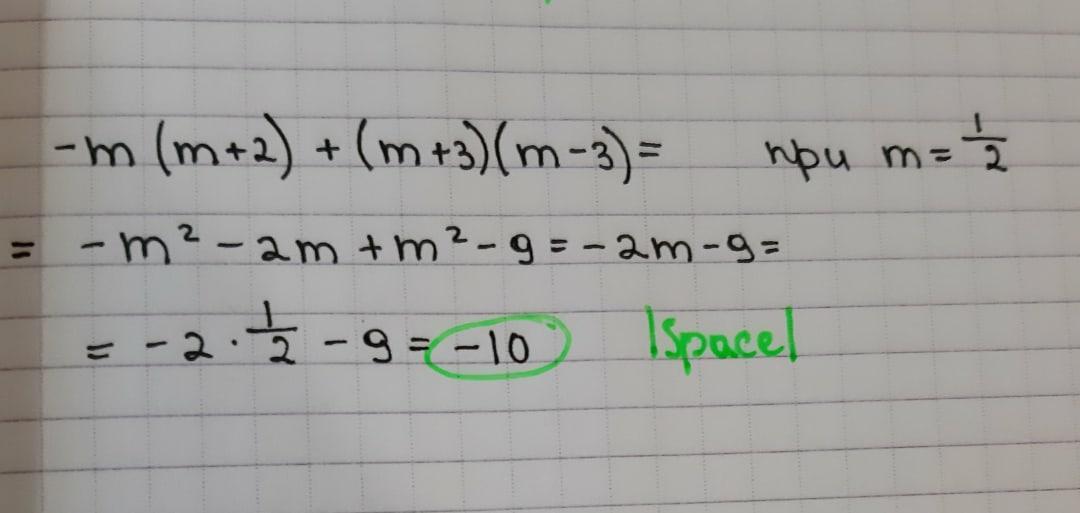 -m (m+2) + (m+3)(m-3)= при m = 1/2
= -m² - 2m + m² - 9 = -2m - 9 =
= -2 · 1/2 - 9 = -10 |Space|